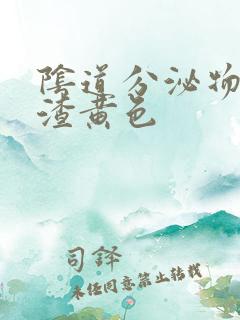 陰道分泌物
渣黄色
司鐸
未经同意禁止转载